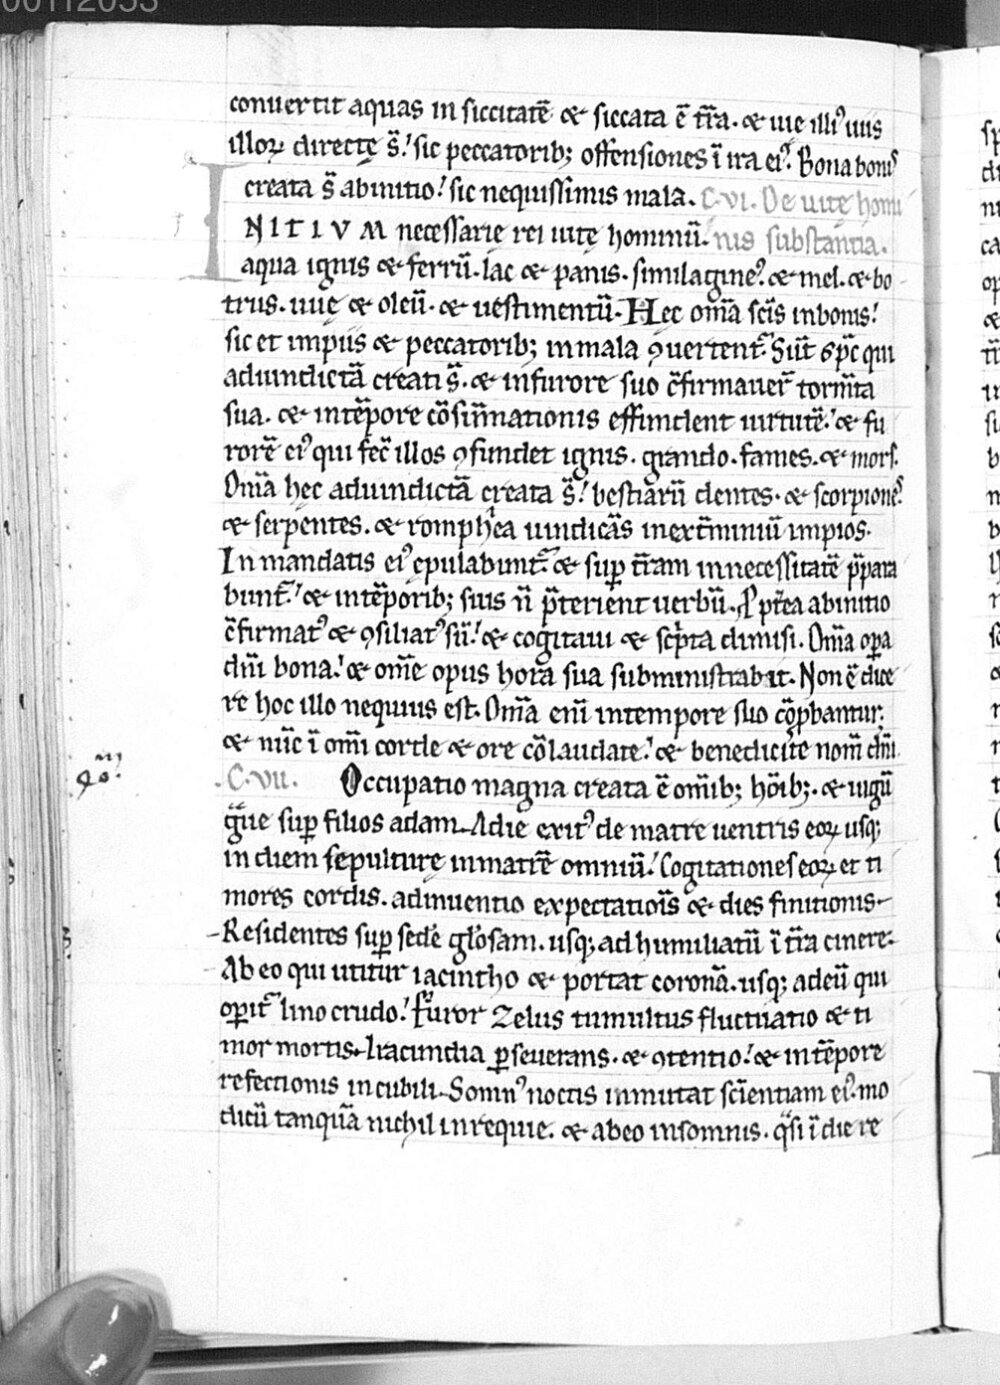 00112053
conuertit aquas in siccitatē & siccata ē t̄ra. & uie illiꝰ uiis
illoꝝ directe s̄. sic peccatorib; offensiones ī ira eiꝰ. Bona bonis
creata s̄ abinitio. sic nequissimis mala. C.vi. De uite homi
INITIVM necessarie rei uite hominū. nis substantia.
aqua ignis & ferrū. lac & panis. similagineꝰ. & mel. & bo
trus. uue & oleū. & uestimentū. Hec om̄a sc̄is inbonis.
sic et impiis & peccatorib; inmala ꝯuertent᷑. Sūt sp̄c qui
aduindictā creati s̄. & infurore suo c̄firmauer̄ torm̄ta
sua. & intēpore cōsum̄mationis effundent uirtutē. & fu
rorē eiꝰ qui fec̄ illos ꝯfundet ignis. grando. fames. & mors.
Om̄a hec aduindictā creata s̄. bestiarū dentes. & scorpioneꝰ.
& serpentes. & romphea uindicās inext̄miniū impios.
In mandatis eiꝰ epulabunt᷑. & suꝑ t̄ram innecessitatē p̄para
bunt᷑. & intēporib; suis n̄ p̄terient uerbū. Ꝓpt̄ea abinitio
c̄firmatꝰ & ꝯsiliatꝰ sū. & cogitaui & sc̄pta dimisi. Om̄a oꝑa
dn̄i bona. & om̄e opus hora sua subministrabit. Non ē dice
re hoc illo nequius est. Om̄a eni intempore suo cōꝓbantur.
& nūc ī om̄i corde & ore cōlaudate. & benedicite nom̄ dn̄i
C.vii. Occupatio magna creata ē om̄ib; hōib;. & iugū
g̃ue suꝑ filios adam. Adie exitꝰ de matre uentris eoꝝ usq;
in diem sepulture inmatrē omniū. Cogitationes eoꝝ et ti
mores cordis. adinuentio expectatiōis & dies finitionis.
Residentes suꝑ sedē glōsam. usq; ad humiliatū ī t̄ra cinere.
Ab eo qui utitur iacintho & portat coronā. usq; adeū qui
oꝑit᷑ lino crudo. furor zelus tumultus fluctuatio & ti
mor mortis. Iracundia ꝑseuerans. & ꝯtentio. & intēpore
refectionis incubili. Somnꝰ noctis inmutat sc̄ientiam eiꝰ. mo
dicū tanquā nichil inrequie. & abeo insomnis. q̃si ī die re